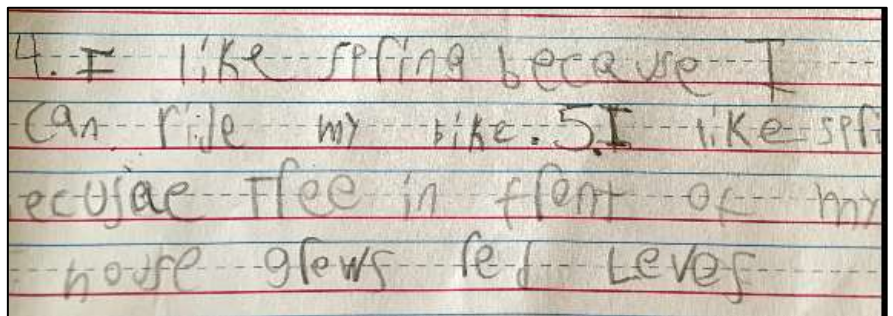 4. I like spring because I
can ride my bike. 5. I like spr
ecusae Tree in front of my
house grows red Leves